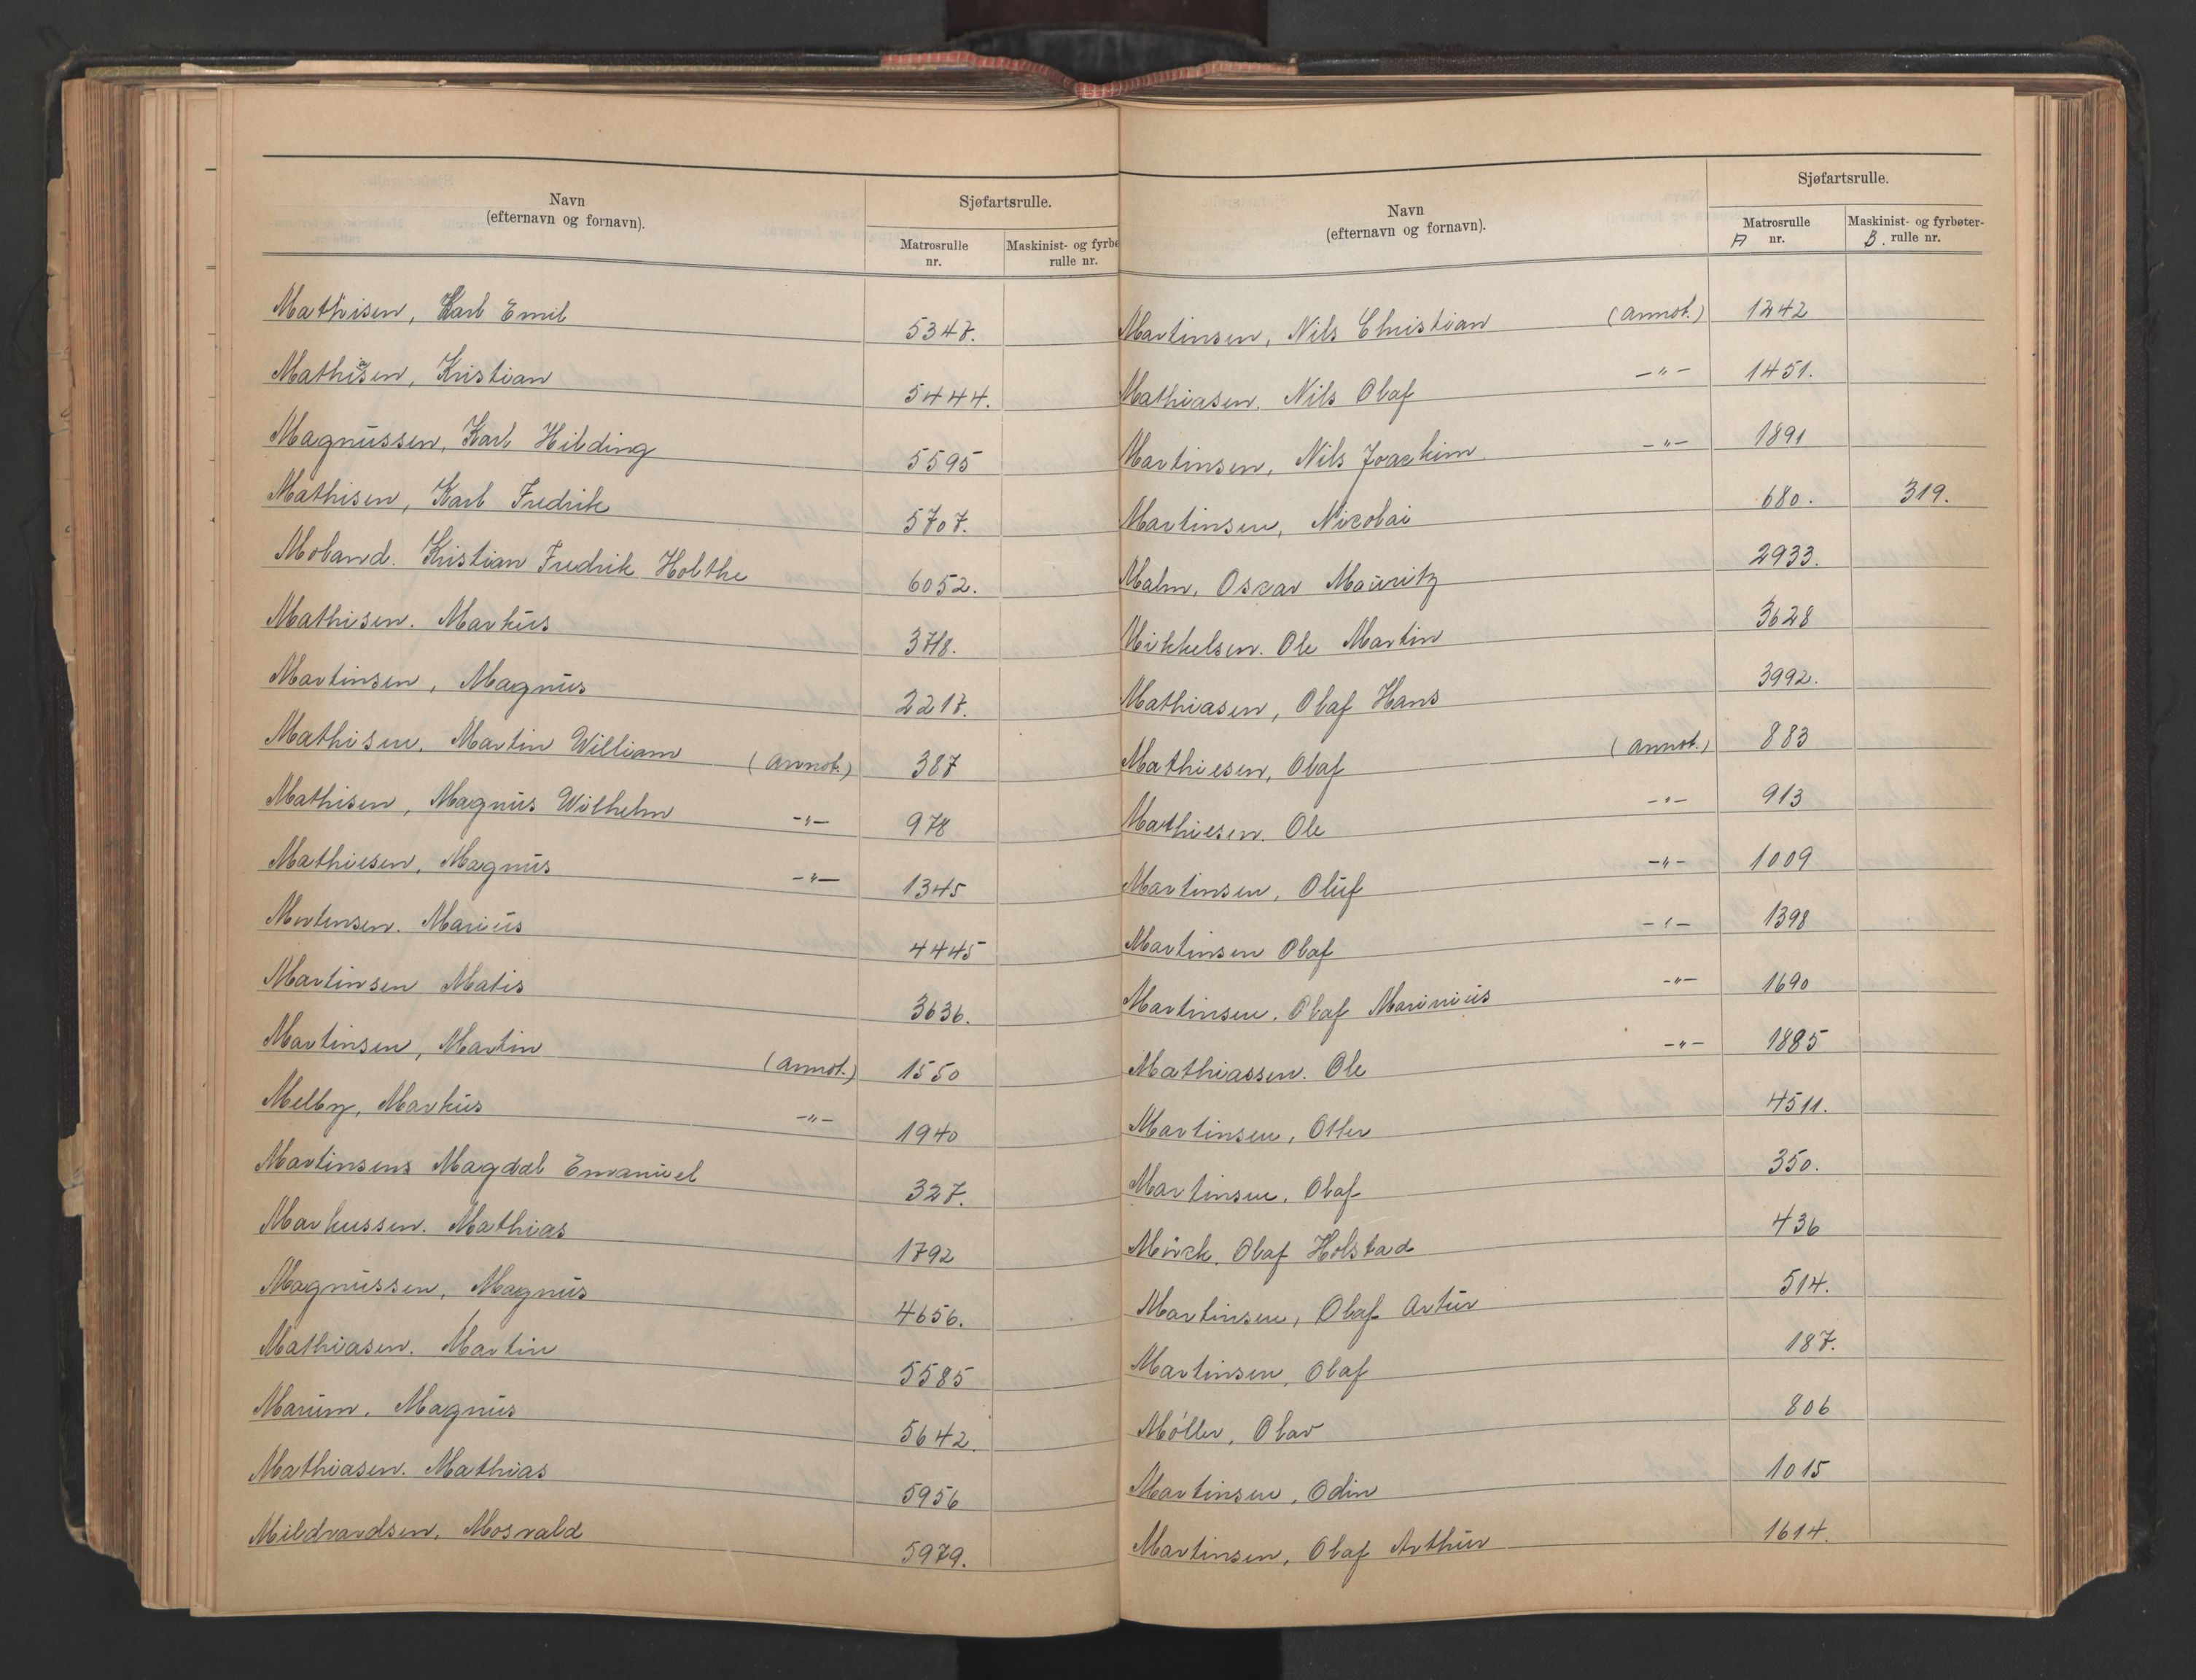 Navn
(efternavn og fornavn).
Sjøfartsrulle.
Matrosrulle
nr.
Maskinist- og fyrbø
rulle nr.
Mathisen, Karl Emil 5347.
Mathisen, Kristian 5444.
Magnussen, Karl Hilding 5595
Mathisen, Karl Fredrik 5707.
Moland. Kristian Fredrik Holthe 6052.
Mathisen. Markus
Martinsen, Magnus 2217.
Mathisen, Martin William (Annot.) 387
Mathisen, Magnus Wilhelm -"- 978
Mathiesen, Magnus -"- 1345
Mortensen. Marius 4445
Martinsen Matis 3636.
Martinsen, Martin (Annot.) 1550
Melby, Markus -"- 1940
Martinsens Magdal Emanuel 327.
Markussen. Mathias 1792
Magnussen, Magnus 4656.
Mathiasen. Martin 5585
Marum. Magnus 5642.
Mathiasen. Mathias 5956
Mildvardsen, Mosvald 5979.
Navn
(efternavn og fornavn).
Sjøfartsrulle.
Matrosrulle
A nr.
Maskinist- og fyrbøter-
B. rulle nr.
Martinsen, Nils Christian (Annot.) 1242
Mathiasen, Nils Olaf -"- 1451.
Martinsen, Nils Joachim -"- 1891
Martinsen, Nicolai 680. 319.
Malm, Oscar Mauritz 2933.
Mikkelsen. Ole Martin 3628
Mathiasen, Olaf Hans 3992.
Mathiesen, Olaf (Annot.) 883
Mathiesen. Ole -"- 913
Martinsen, Oluf -"- 1009
Martinsen Olaf -"- 1398
Martinsen. Olaf Marinius -"- 1690
Mathiassen. Ole -"- 1885
Martinsen, Otter 4511.
Martinsen, Olaf 350.
Mürck, Olaf Holstad 436
Martinsen, Olaf Artur 514.
Martinsen, Olaf 187.
Møller, Olav 806
Martinsen, Odin 1015
Martinsen, Olaf Arthur 1614.